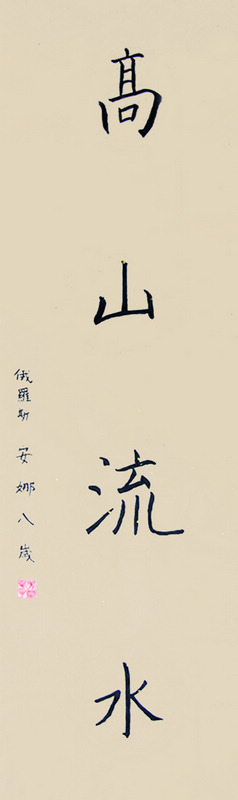 髙山流水
俄羅斯 安娜八歲